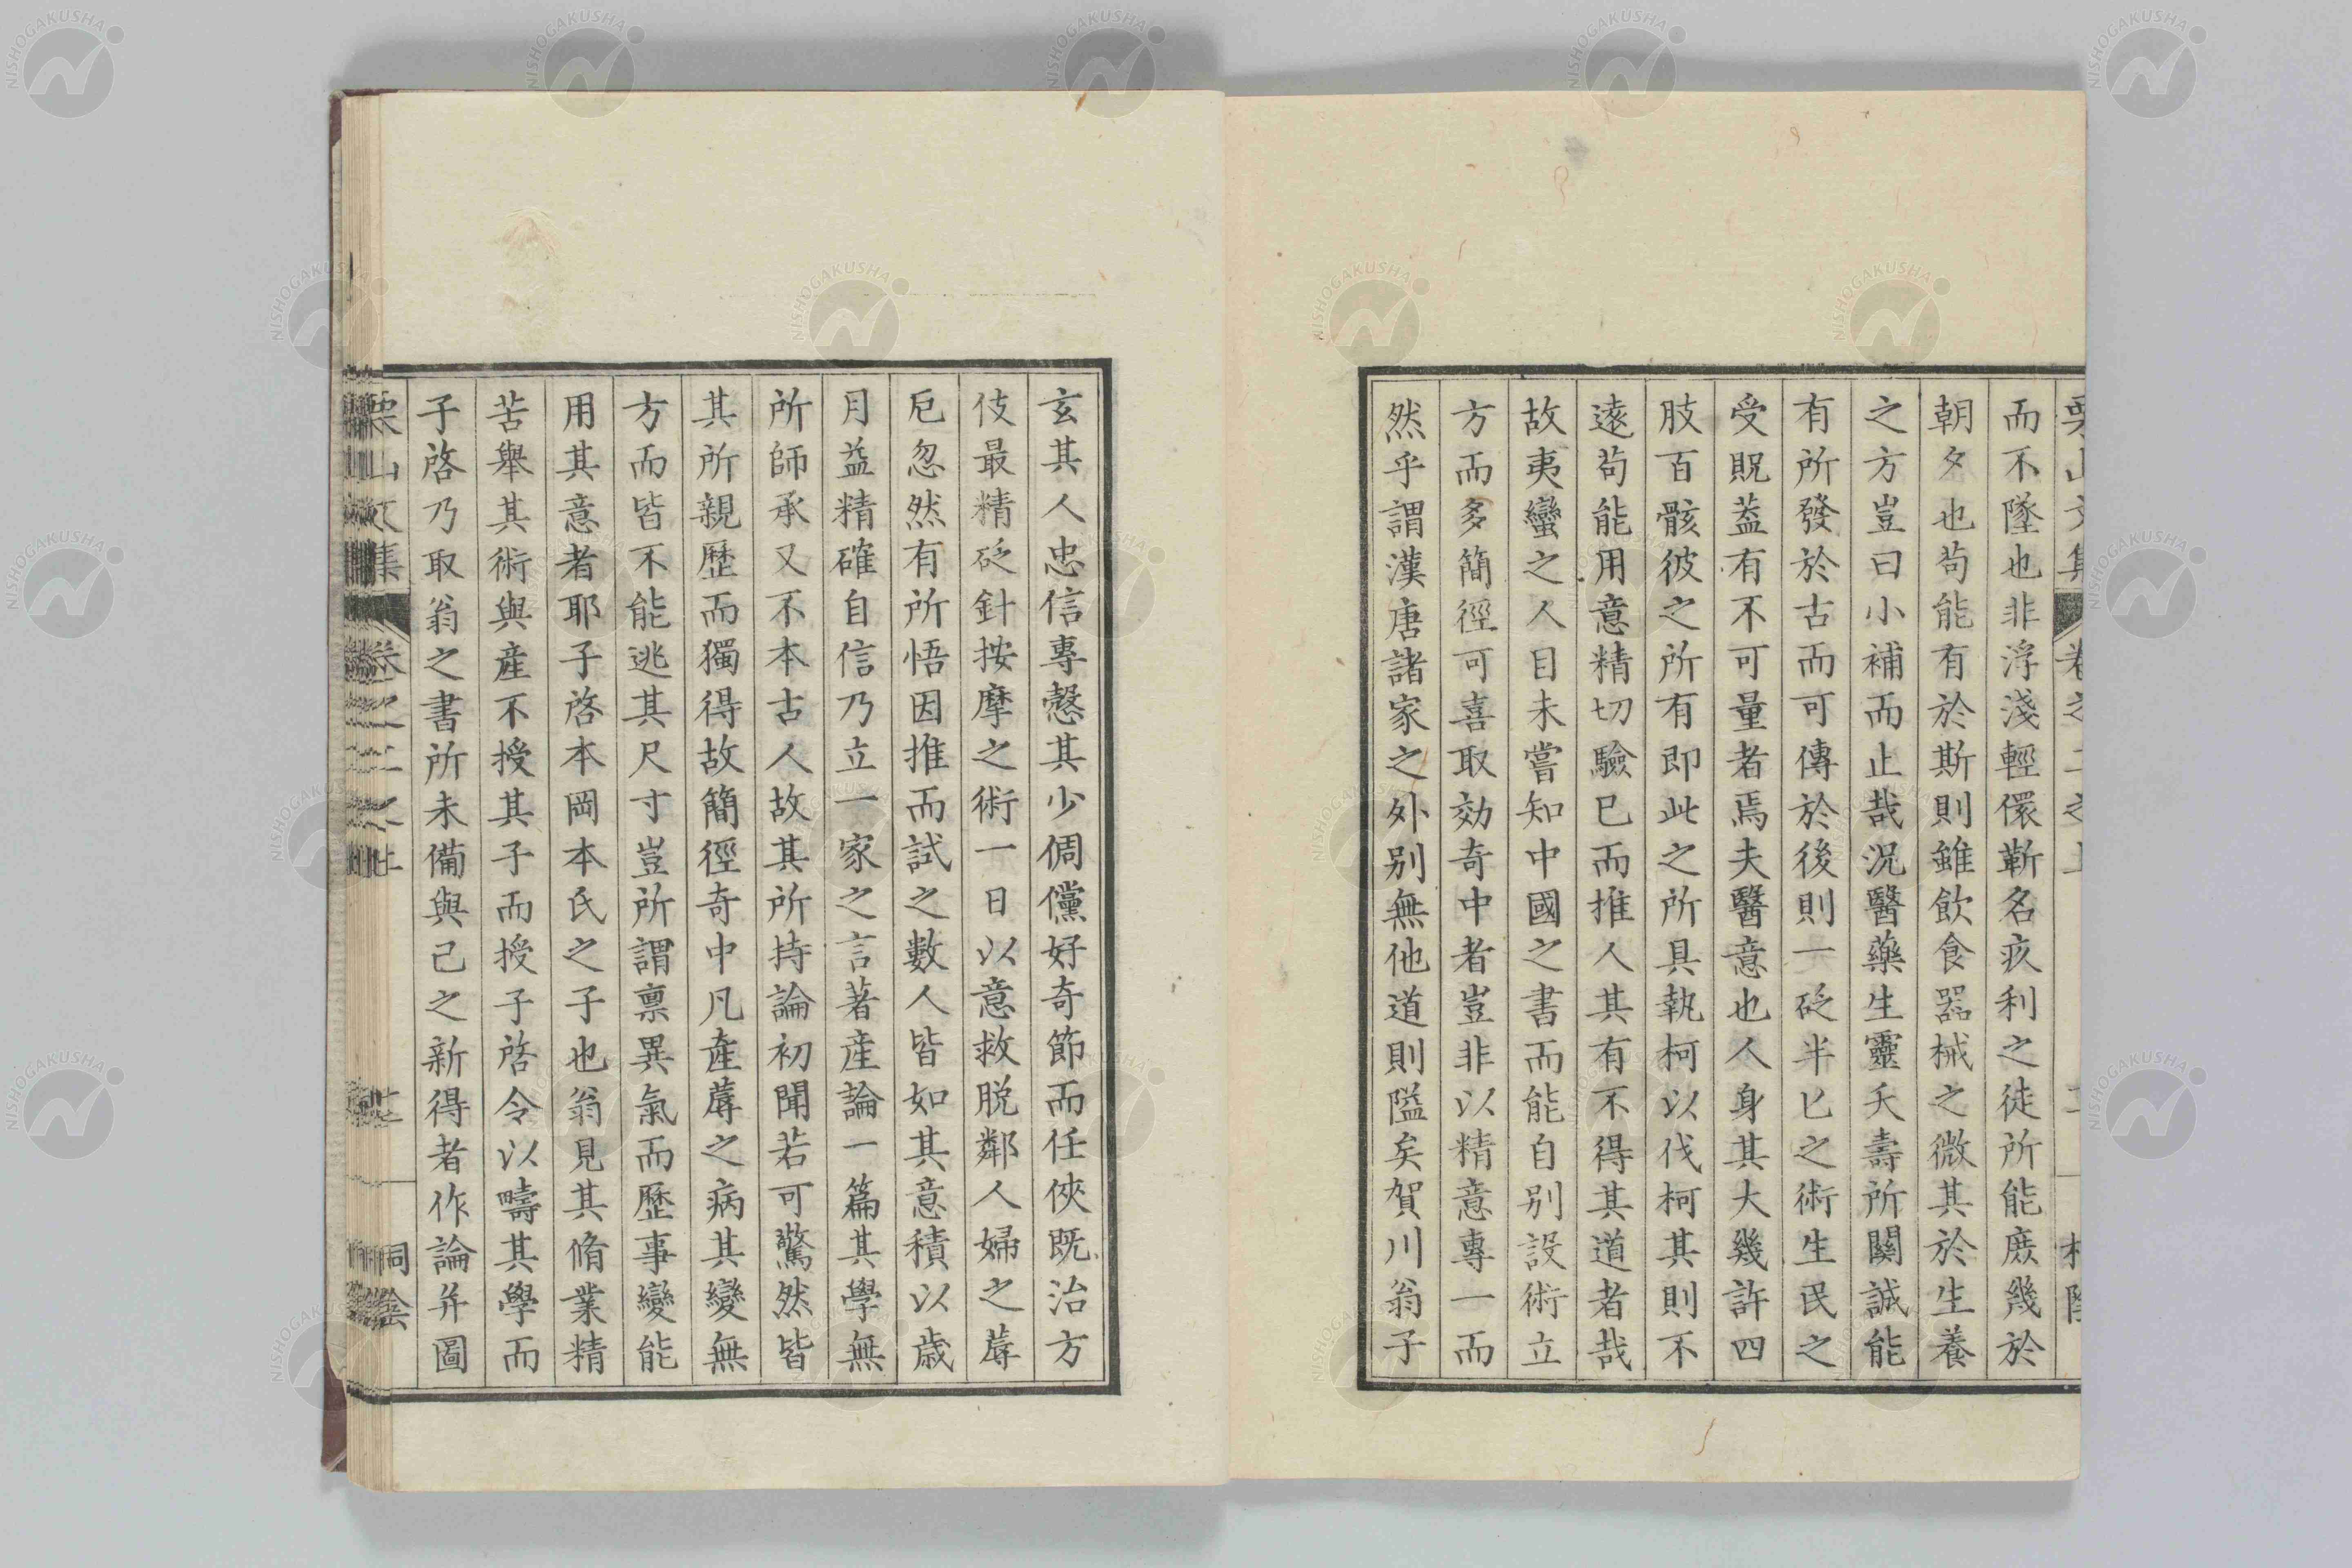 而不墜也非浮淺輕儇蘄名疚利之徒所能庶幾於
朝夕也苟能有於斯則雖飲食器械之微其於生養
之方豈曰小補而止哉況醫藥生靈夭壽所關誠能
有所發於古而可傳於後則一砭半匕之術生民之
受貺葢有不可量者焉夫醫意也人身其大幾許四
肢百骸彼之所有即此之所具執柯以伐柯其則不
遠苟能用意精切驗已而推人其有不得其道者哉
故夷蠻之人目未嘗知中國之書而能自別設術立
方而多簡徑可喜取効奇中者豈非以精意專一而
然乎謂漢唐諸家之外別無他道則隘矣賀川翁子
玄其人忠信專慤其少倜儻好奇節而任俠既治方
伎最精砭針按摩之術一日以意救脫鄰人婦之蓐
厄忽然有所悟因推而試之數人皆如其意積以歲
月益精確自信乃立一家之言著產論一篇其學無
所師承又不本古人故其所持論初聞若可驚然皆
其所親歷而獨得故簡徑奇中凡產蓐之病其變無
方而皆不能逃其尺寸豈所謂禀異氣而歷事變能
用其意者耶子啓本岡本氏之子也翁見其脩業精
苦舉其術與產不授其子而授子啓令以疇其學而
子啓乃取翁之書所未備與己之新得者作論并圖
栗山文集 卷之二之上
NISHOGAKUSHA